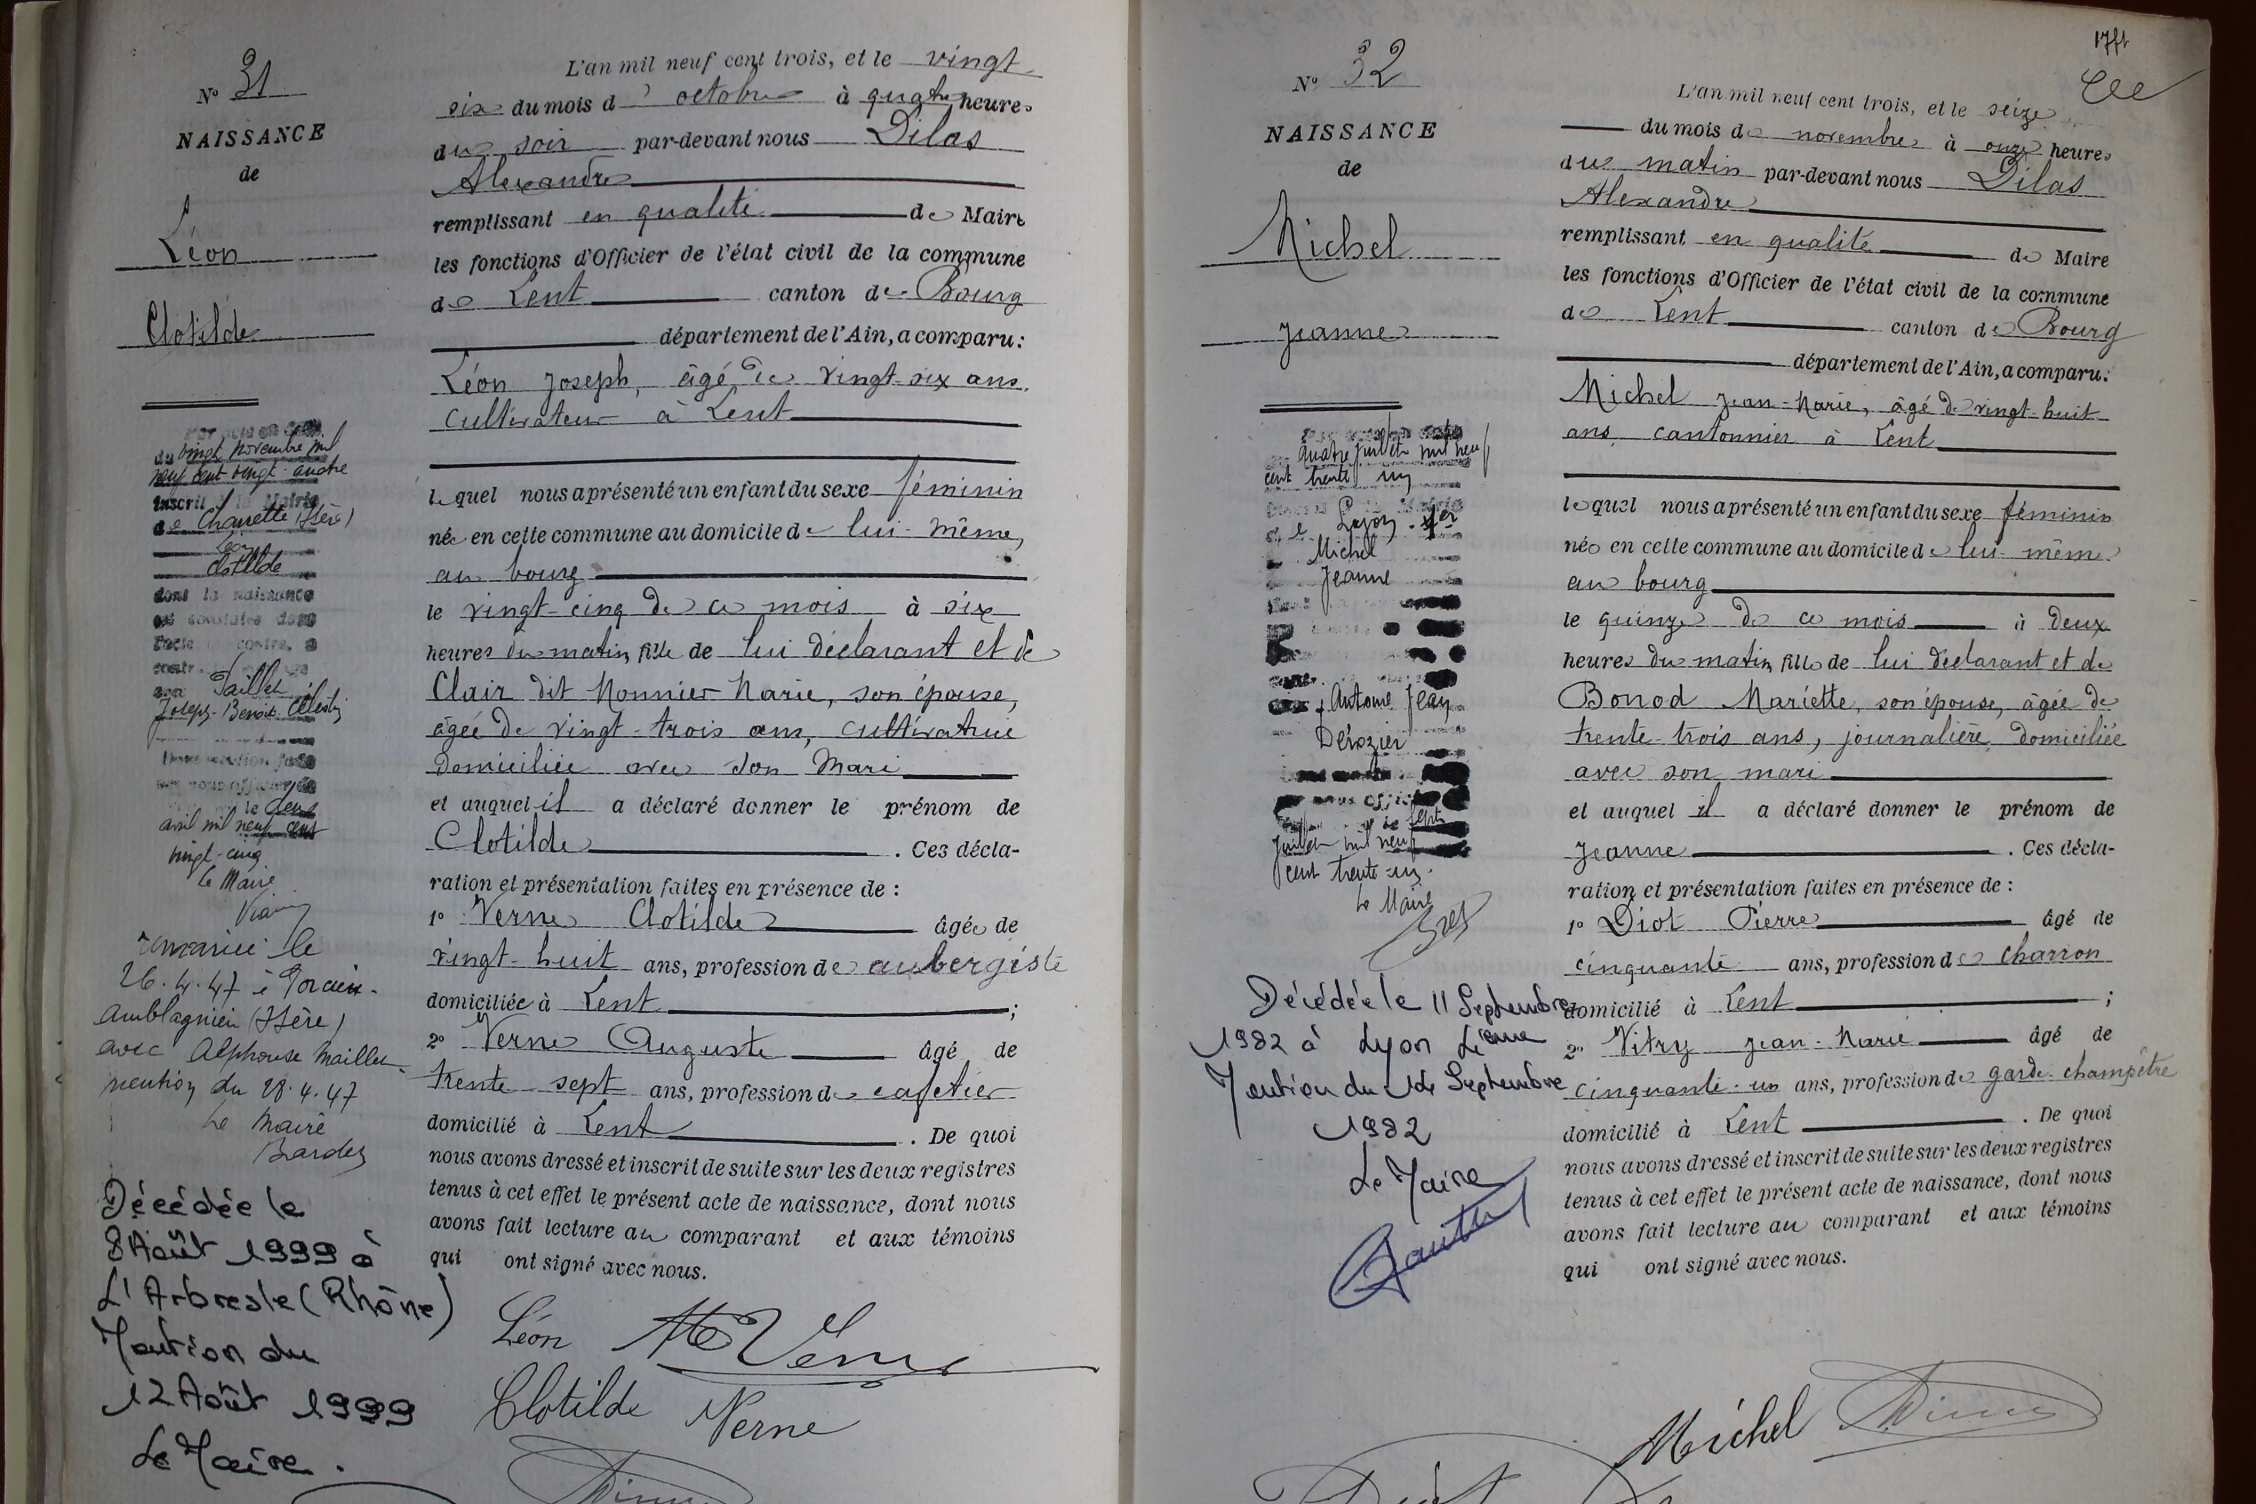 N° 31
NAISSANCE
de
Léon
Clotilde
du vingt novembre mil
neuf cent vingt-quatre
inscrit à la Mairie
de Charette (Isère)
Léon
Clotilde
dont la naissance
est constatée dans
l'acte ci-contre, a
contr
avec Paillet
Joseph-Benoit Célestin
le deux
avril mil neuf cent
vingt-cinq
Le Maire
remariée le
26.4.47 à
Amblagnieu (Isère)
avec Alphonse Maillet
mention du 28.4.47
Le Maire
Décédée le
8 Août 1999 à
L'Arbresle (Rhône)
Mention du
12 Août 1999
Le Maire.
L'an mil neuf cent trois, et le vingt
six du mois d'octobre à quatre heures
du soir par-devant nous Dilas
Alexandre
remplissant en qualité de Maire
les fonctions d'Officier de l'état civil de la commune
de Lent canton de Bourg
département de l'Ain, a comparu:
Léon Joseph, âgé de vingt-six ans,
cultivateur à Lent
lequel nous a présenté un enfant du sexe féminin
née en cette commune au domicile de lui-même,
au bourg
le vingt-cinq de ce mois à six
heures du matin, fille de lui déclarant et de
Clair dit Monnier Marie, son épouse,
âgée de vingt-trois ans, cultivatrice
domiciliée avec son mari
et auquel il a déclaré donner le prénom de
Clotilde. Ces décla-
ration et présentation faites en présence de:
1° Verne Clotilde âgée de
vingt-huit ans, profession de aubergiste
domiciliée à Lent;
2° Verne Auguste âgé de
trente-sept ans, profession de cafetier
domicilié à Lent. De quoi
nous avons dressé et inscrit de suite sur les deux registres
tenus à cet effet le présent acte de naissance, dont nous
avons fait lecture au comparant et aux témoins
qui ont signé avec nous.
Léon Verne
Clotilde Verne
N° 32
NAISSANCE
de
Michel
Jeanne
quatre juillet mil neuf
cent trente un
Lyon
Michel
Jeanne
Antoine Jean
Derozier
le sept
juillet mil neuf
cent trente-un.
Le Maire
Décédée le 11 Septembre
1982 à Lyon
Mention du 14 Septembre
1982
Le Maire
L'an mil neuf cent trois, et le seize
du mois de novembre à onze heures
du matin par-devant nous Dilas
Alexandre
remplissant en qualité de Maire
les fonctions d'Officier de l'état civil de la commune
de Lent canton de Bourg
département de l'Ain, a comparu:
Michel Jean-Marie, âgé de vingt-huit
ans, cantonnier à Lent
lequel nous a présenté un enfant du sexe féminin
née en cette commune au domicile de lui-même
au bourg
le quinze de ce mois à deux
heures du matin, fille de lui déclarant et de
Bonod Mariette, son épouse, âgée de
trente-trois ans, journalière, domiciliée
avec son mari
et auquel il a déclaré donner le prénom de
Jeanne. Ces décla-
ration et présentation faites en présence de:
1° Diot Pierre âgé de
cinquante ans, profession de charron
domicilié à Lent;
2° Vitry Jean-Marie âgé de
cinquante-un ans, profession de garde-champêtre
domicilié à Lent. De quoi
nous avons dressé et inscrit de suite sur les deux registres
tenus à cet effet le présent acte de naissance, dont nous
avons fait lecture au comparant et aux témoins
qui ont signé avec nous.
Michel